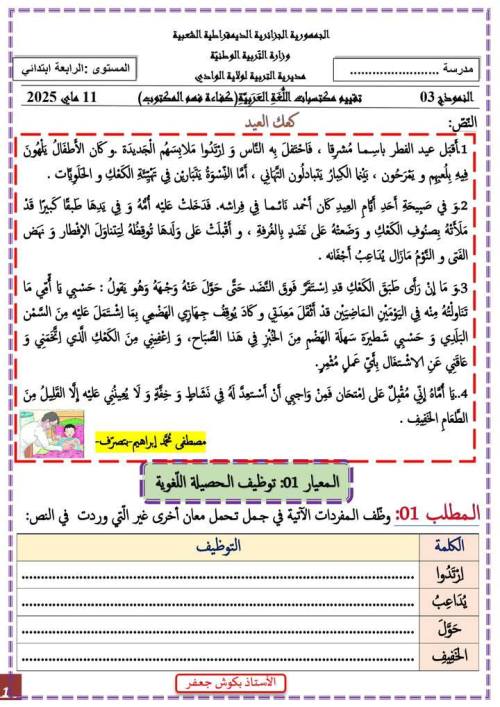 الجمهورية الجزائرية الديمقراطية الشعبية
وزارة التربية الوطنيّة
مديرية التربية لولاية الوادي
مدرسة ........................
المستوى :الرابعة ابتدائي
النموذج 03
تقييم مكتسبات اللُّغَةِ العَرَبِيَّةِ(كفاءة فهم المكتوب)
11 ماي 2025
النّصّ:
كعك العيد
1.أقبَل عيد الفطر باسِما مُشرِقا ، فَاحْتفَلَ بِه النَّاس وَ ارْتَدُوا مَلابِسَهُم الْجَدِيدَة .و كَان الأَطْفَالُ يَلْهُونَ
فِيهِ بِلُعبِهِم و يَمْرَحُون ، بَيْنَما الكِبارُ يَتَبادَلُونَ التَّهانِي ، أمَّا النِّسْوَةُ يَتَبَارَيْن فِي تَهْيِئَةِ الكَعْكِ و الحَلْوِيَّات .
2.وَ في صَبِيحَةِ أَحَدِ أيَّامِ العِيدِ كانَ أحْمد نَائما في فِراشه. فَدَخَلَتْ عَلَيْه أُمُّهُ وَ فِي يَدِهَا طَبقًا كَبيرًا قَدْ
مَلَأَتْهُ بِصُنُوفِ الكَعْكِ وَ وَضَعَتْهُ عَلى نَضَدٍ بِالغُرفَةِ ، وَ أَقْبَلَتْ عَلى وَلَدِهَا تُوقِظُهُ لِيَتَناوَلَ الإفْطار وَ نَهضَ
الفَتى و النَّوْمُ مَازَال يُدَاعِبُ أَجْفانَه .
3.وَ مَا إِنْ رَأَى طَبَقَ الكَعْكِ قَدِ اِسْتَقَرَّ فَوقَ النَّضَد حَتَّى حَوَّلَ عَنْهُ وَجْهَهُ وهُو يَقولُ : حَسْبِي يَا أُمِّي مَا
تَنَاوَلْتُهُ مِنْه فِي اليَوْمَيْنِ المَاضِيَيْن قَدْ أَثْقَلَ مِعدَتِي و كَادَ يُوقِفُ جِهَازِي الهَضْمِي بِمَا اشْتَمَلَ عَلَيْه مِنَ السَّمْنِ
البَلَدِي وَ حَسْبِي شَطِيرَة سَهلَة الهَضْمِ مِنَ الخُبْزِ فِي هَذا الصَّبَاح، وَ اِعْفِينِي مِنَ الكَعْكِ الَّذِي اتْخَمَنِي وَ
عَاقَنِي عَنِ الاشْتِغَال بِأَيِّ عَمَلٍ مُثْمِرٍ.
4..يَا أُمَّاهُ إِنِّي مُقْبِلٌ عَلَى امْتحَان فَمِنْ وَاجِبِي أَنْ أَسْتَعِدَّ لَهُ فِي نَشَاطٍ وَ خِفَّةٍ وَ لَا يُعِينُنِي عَلَيْه إلَّا القَلِيلُ مِنَ
الطَّعَامِ الخَفِيفِ .
مصطفى محمّد إبراهيم-بتصرّف-
المعيار 01: توظيف الحصيلة اللّغوية
المطلب 01: وظّف المفردات الآتية في جمل تحمل معان أخرى غير الّتي وردت في النص:
الكلمة
التوظيف
اِرْتَدُوا
يُدَاعِبُ
حَوَّلَ
الخَفِيفِ
الأستاذ بكوش جعفر
1